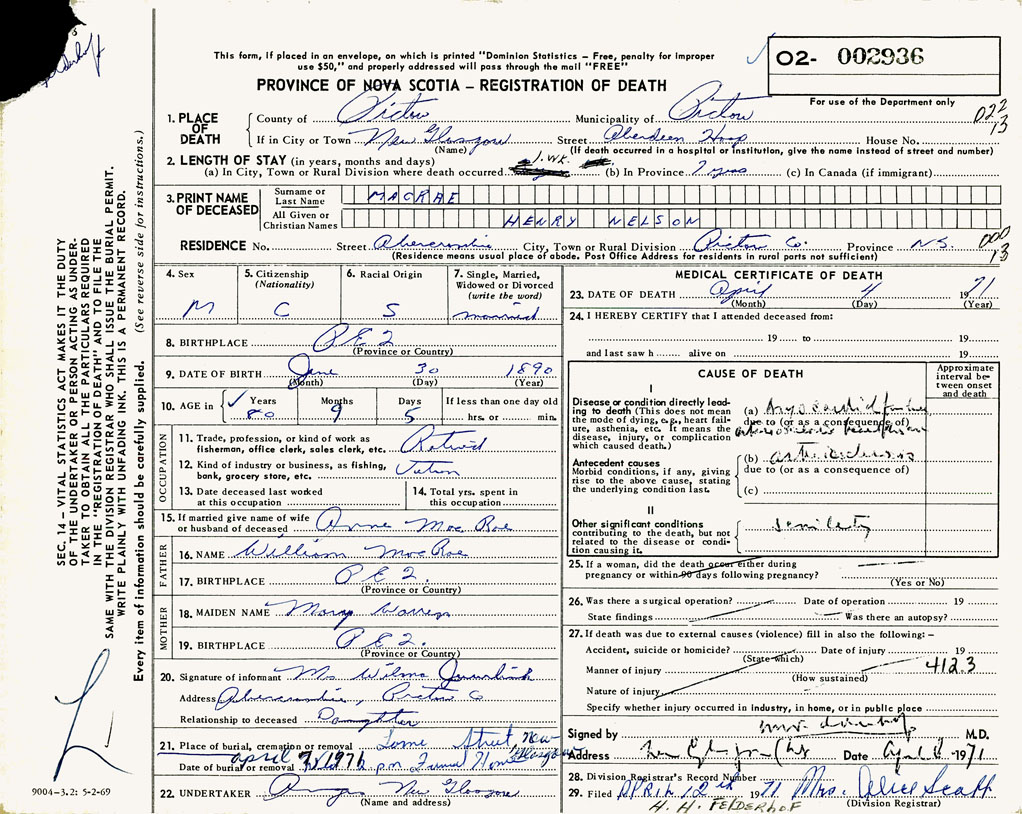 This form, if placed in an envelope, on which is printed "Dominion Statistics – Free, penalty for improper
use $50," and properly addressed will pass through the mail "FREE"
O2- 002936
PROVINCE OF NOVA SCOTIA – REGISTRATION OF DEATH
For use of the Department only
022
13
1. PLACE OF DEATH
County of Pictou Municipality of Pictou
If in City or Town New Glasgow Street Aberdeen Hosp House No.
(Name) (If death occurred in a hospital or institution, give the name instead of street and number)
2. LENGTH OF STAY (in years, months and days)
(a) In City, Town or Rural Division where death occurred 1. WK. (b) In Province 7 yrs (c) In Canada (if immigrant)
3. PRINT NAME OF DECEASED
Surname or Last Name MACRAE
All Given or Christian Names HENRY NELSON
RESIDENCE No. Street Abercrombie City, Town or Rural Division Pictou Co. Province N.S.
000
13
(Residence means usual place of abode. Post Office Address for residents in rural parts not sufficient)
4. Sex M
5. Citizenship (Nationality) C
6. Racial Origin S
7. Single, Married, Widowed or Divorced (write the word) married
8. BIRTHPLACE P E I
(Province or Country)
9. DATE OF BIRTH June 30 1890
(Month) (Day) (Year)
10. AGE in Years 80 Months 9 Days 5 If less than one day old
hrs. or min.
OCCUPATION
11. Trade, profession, or kind of work as
fisherman, office clerk, sales clerk, etc. Retired
12. Kind of industry or business, as fishing,
bank, grocery store, etc.
13. Date deceased last worked
at this occupation
14. Total yrs. spent in
this occupation
15. If married give name of wife
or husband of deceased Anne Mac Rae
FATHER
16. NAME William Mac Rae
17. BIRTHPLACE P E I.
(Province or Country)
MOTHER
18. MAIDEN NAME Mary Warren
19. BIRTHPLACE P E I.
(Province or Country)
20. Signature of informant Mrs Wilma
Address Abercrombie, Pictou Co
Relationship to deceased Daughter
21. Place of burial, cremation or removal Lorne Street New Glasgow
Date of burial or removal April 7/1971 2 p.m. Funeral Home
22. UNDERTAKER Angus New Glasgow
(Name and address)
MEDICAL CERTIFICATE OF DEATH
23. DATE OF DEATH April 4 1971
(Month) (Day) (Year)
24. I HEREBY CERTIFY that I attended deceased from:
19 to 19
and last saw h alive on 19
CAUSE OF DEATH
Approximate interval between onset and death
I
Disease or condition directly lead-
ing to death (This does not mean
the mode of dying, e.g., heart fail-
ure, asthenia, etc. It means the
disease, injury, or complication
which caused death.)
(a) Myocardial failure
due to (or as a consequence of)
arteriosclerotic heart disease
Antecedent causes
Morbid conditions, if any, giving
rise to the above cause, stating
the underlying condition last.
(b) arteriosclerosis
due to (or as a consequence of)
(c)
II
Other significant conditions
contributing to the death, but not
related to the disease or condi-
tion causing it.
senility
25. If a woman, did the death occur either during
pregnancy or within 90 days following pregnancy?
(Yes or No)
26. Was there a surgical operation? Date of operation 19
State findings Was there an autopsy?
27. If death was due to external causes (violence) fill in also the following: –
Accident, suicide or homicide? Date of injury 19
(State which)
Manner of injury 412.3
(How sustained)
Nature of injury
Specify whether injury occurred in industry, in home, or in public place
Signed by M.D.
Address Date April 1971
28. Division Registrar's Record Number
29. Filed APRIL 12th 1971 Mrs. Alice Scaff
(Division Registrar)
H. H. FELDERHOF
SEC. 14 – VITAL STATISTICS ACT MAKES IT THE DUTY
OF THE UNDERTAKER OR PERSON ACTING AS UNDER-
TAKER TO OBTAIN ALL THE PARTICULARS REQUIRED
IN THE "REGISTRATION OF DEATH" AND TO FILE THE
SAME WITH THE DIVISION REGISTRAR WHO SHALL ISSUE THE BURIAL PERMIT.
WRITE PLAINLY WITH UNFADING INK. THIS IS A PERMANENT RECORD.
Every item of information should be carefully supplied. (See reverse side for instructions.)
9004–3.2: 5-2-69